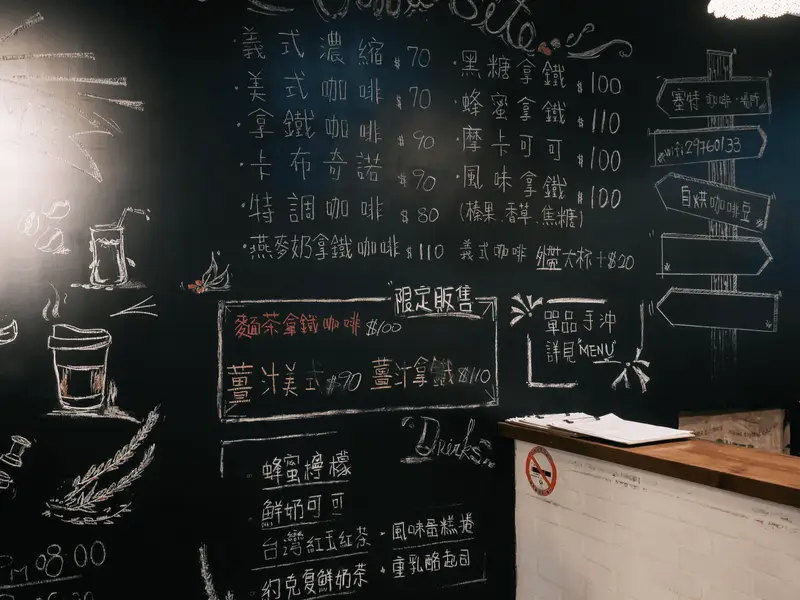 義式濃縮 $70
美式咖啡 $70
拿鐵咖啡 $90
卡布奇諾 $90
特調咖啡 $80
燕麥奶拿鐵咖啡 $110
・黑糖拿鐵 $100
・蜂蜜拿鐵 $110
・摩卡可可 $100
・風味拿鐵 $100
(榛果.香草.焦糖)
義式咖啡 外帶大杯+$20
限定販售
麵茶拿鐵咖啡 $100
薑汁美式 $90 薑汁拿鐵 $110
單品手沖
詳見"MENU"
塞特咖啡・場所
wifi:29760133
自烘咖啡豆
"Drinks"
蜂蜜檸檬
鮮奶可可
台灣紅玉紅茶
約克夏鮮奶茶
・風味蛋糕捲
・重乳酪起司
PM 08:00